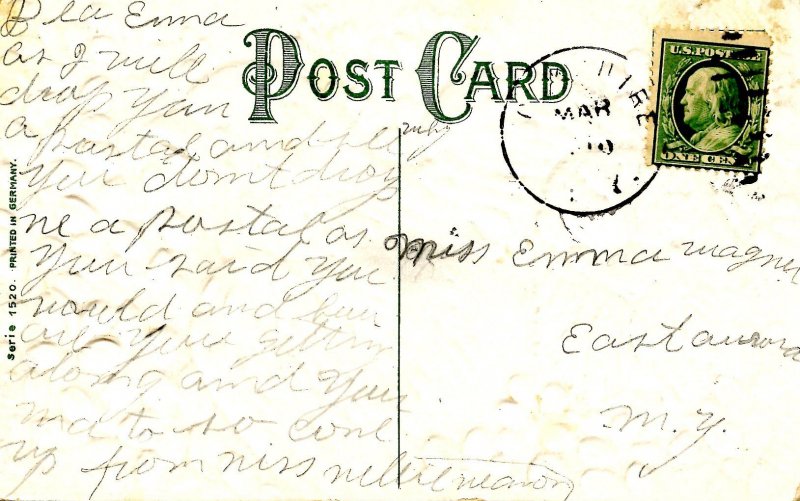 POST CARD
U.S. POSTAGE
ONE CENT
MAR
10
Serie 1520. PRINTED IN GERMANY.
Dea Emma
as I will
drop you
a postal and
you don't drop
me a postal as
you said you
would and
are you gettin
along and your
ma to so come
up from miss nellie
Miss Emma Wagner
East aurora
N. Y.